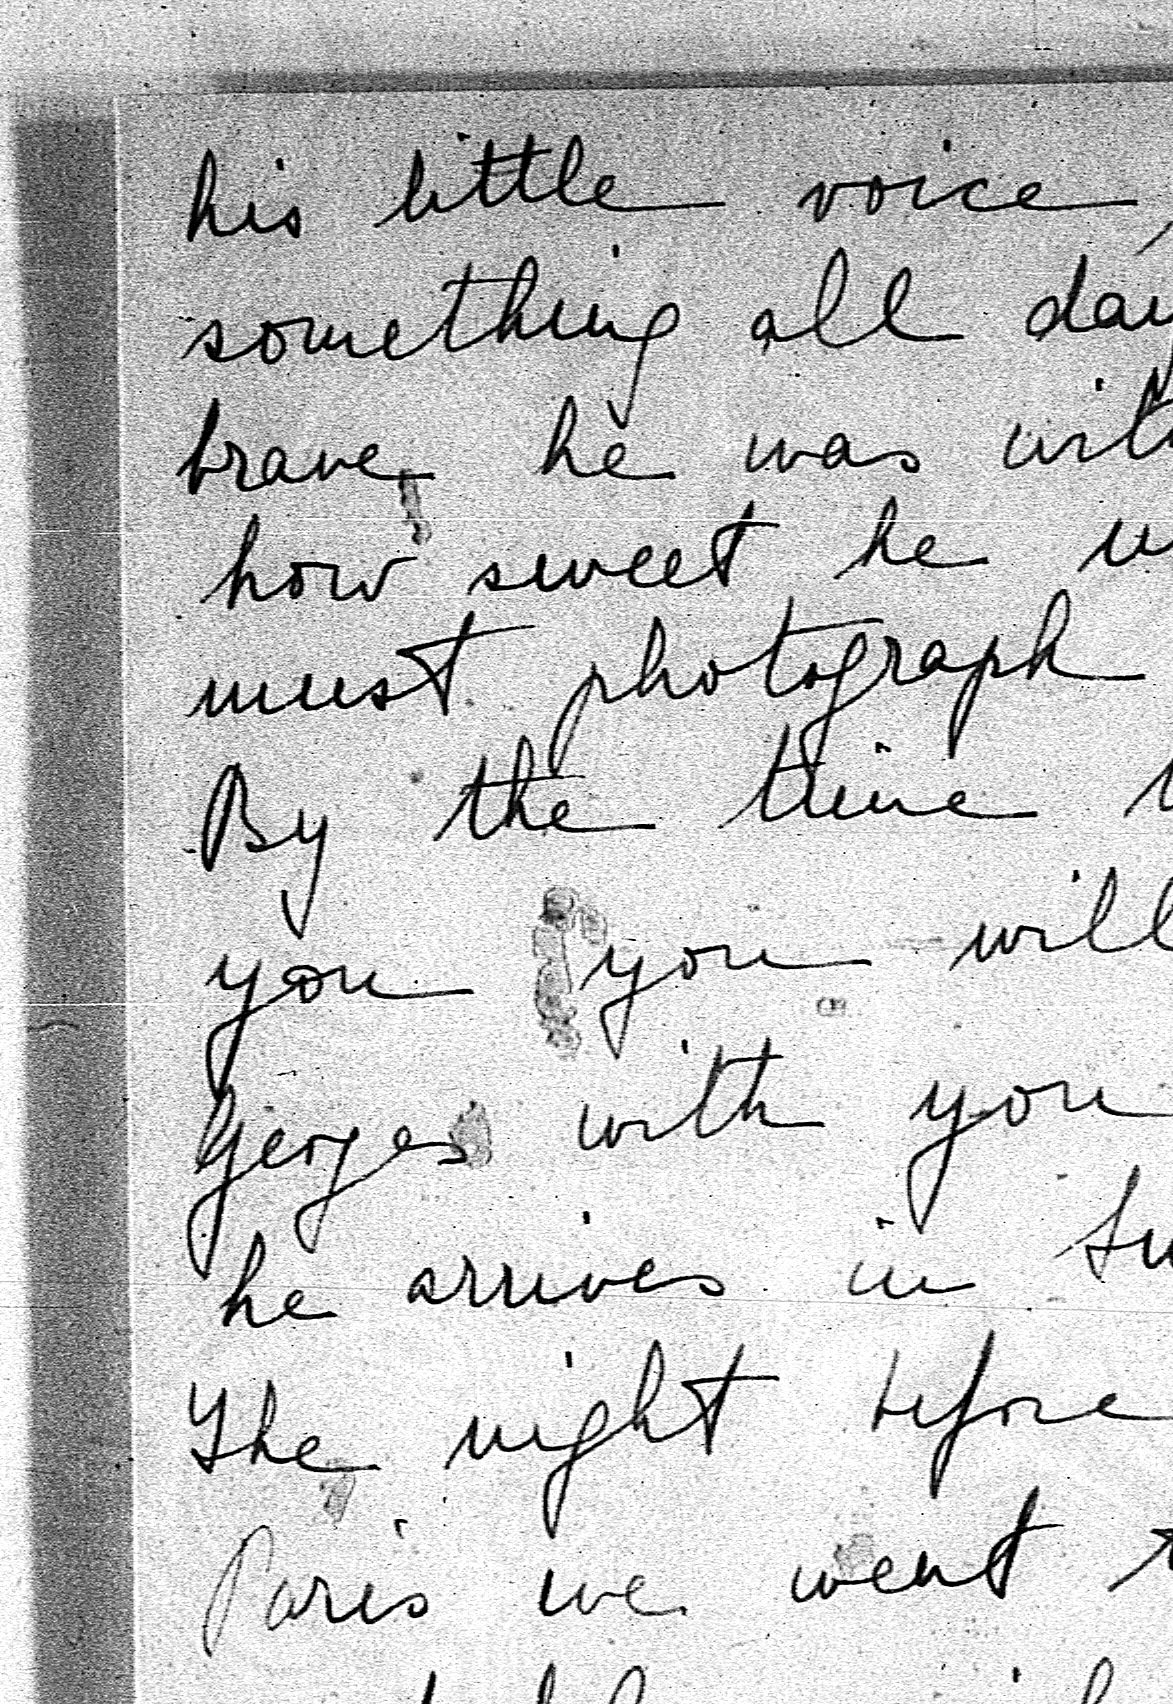 his little voice
something all day
brave he was with
how sweet he
must photograph
By the time
you you will
Georges with you
he arrives in
The night before
Paris we went